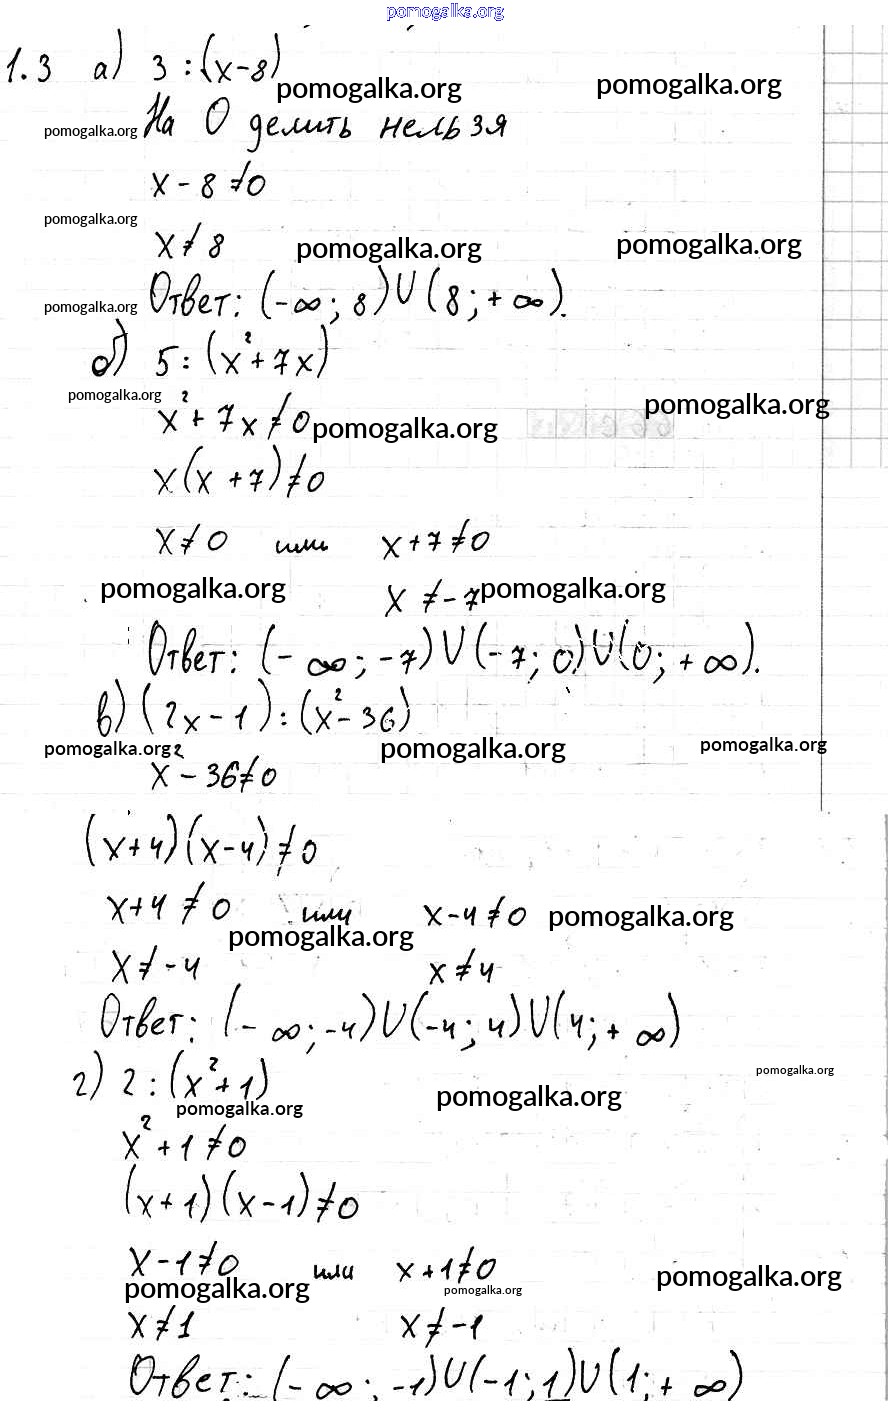 pomogalka.org
1.3 а) 3 : (x-8)
pomogalka.org pomogalka.org
pomogalka.org На 0 делить нельзя
x - 8 ≠ 0
pomogalka.org
x ≠ 8 pomogalka.org pomogalka.org
pomogalka.org Ответ: (-∞; 8) U (8; +∞).
б) 5 : (x² + 7x)
pomogalka.org pomogalka.org
x² + 7x ≠ 0 pomogalka.org
x(x + 7) ≠ 0
x ≠ 0 или x + 7 ≠ 0
pomogalka.org x ≠ -7 pomogalka.org
Ответ: (-∞; -7) U (-7; 0) U (0; +∞).
в) (2x - 1) : (x² - 36)
pomogalka.org pomogalka.org pomogalka.org
x² - 36 ≠ 0
(x+4)(x-4) ≠ 0
x+4 ≠ 0 или x-4 ≠ 0 pomogalka.org
pomogalka.org
x ≠ -4 x ≠ 4
Ответ: (-∞; -4) U (-4; 4) U (4; +∞)
г) 2 : (x² + 1) pomogalka.org
pomogalka.org pomogalka.org
x² + 1 ≠ 0
(x+1)(x-1) ≠ 0
x-1 ≠ 0 или x+1 ≠ 0
pomogalka.org pomogalka.org pomogalka.org
x ≠ 1 x ≠ -1
Ответ: (-∞; -1) U (-1; 1) U (1; +∞)